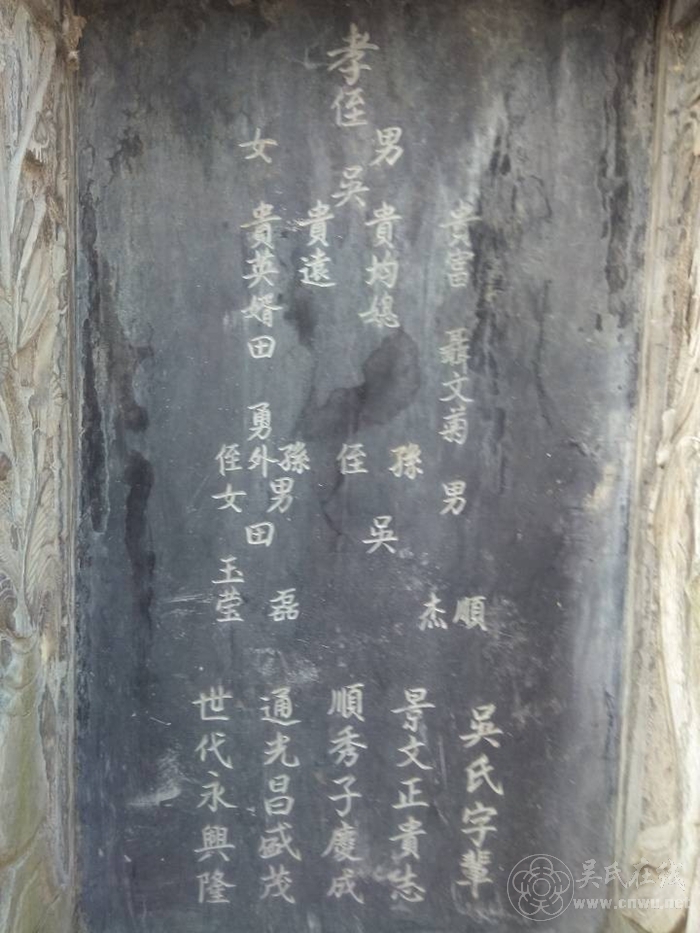 孝侄
男
吳
女
貴富 聶文菊 男
貴均媳
貴遠
貴英婿田 勇
孫
侄
吳
順
杰
孫男
外
田
磊
侄女 玉莹
吳氏字輩
景文正貴志
順秀子慶成
通光昌盛茂
世代永興隆
吴氏在线
www.cnwu.net